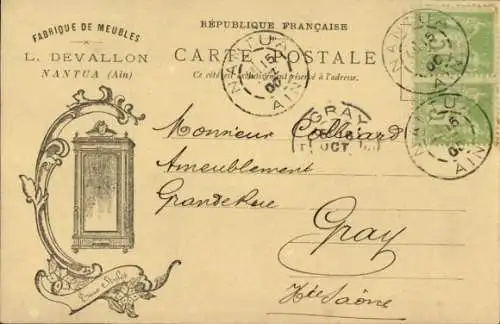 FABRIQUE DE MEUBLES
L. DEVALLON
NANTUA (Ain)
RÉPUBLIQUE FRANÇAISE
CARTE POSTALE
Ce côté est exclusivement réservé à l'adresse.
NANTUA
15
00
AIN
NANTUA
15
00
AIN
NANTUA
15
AIN
GRAY
OCT
Monsieur Colliard
Ameublement
Grande Rue
Gray
Hte Saône